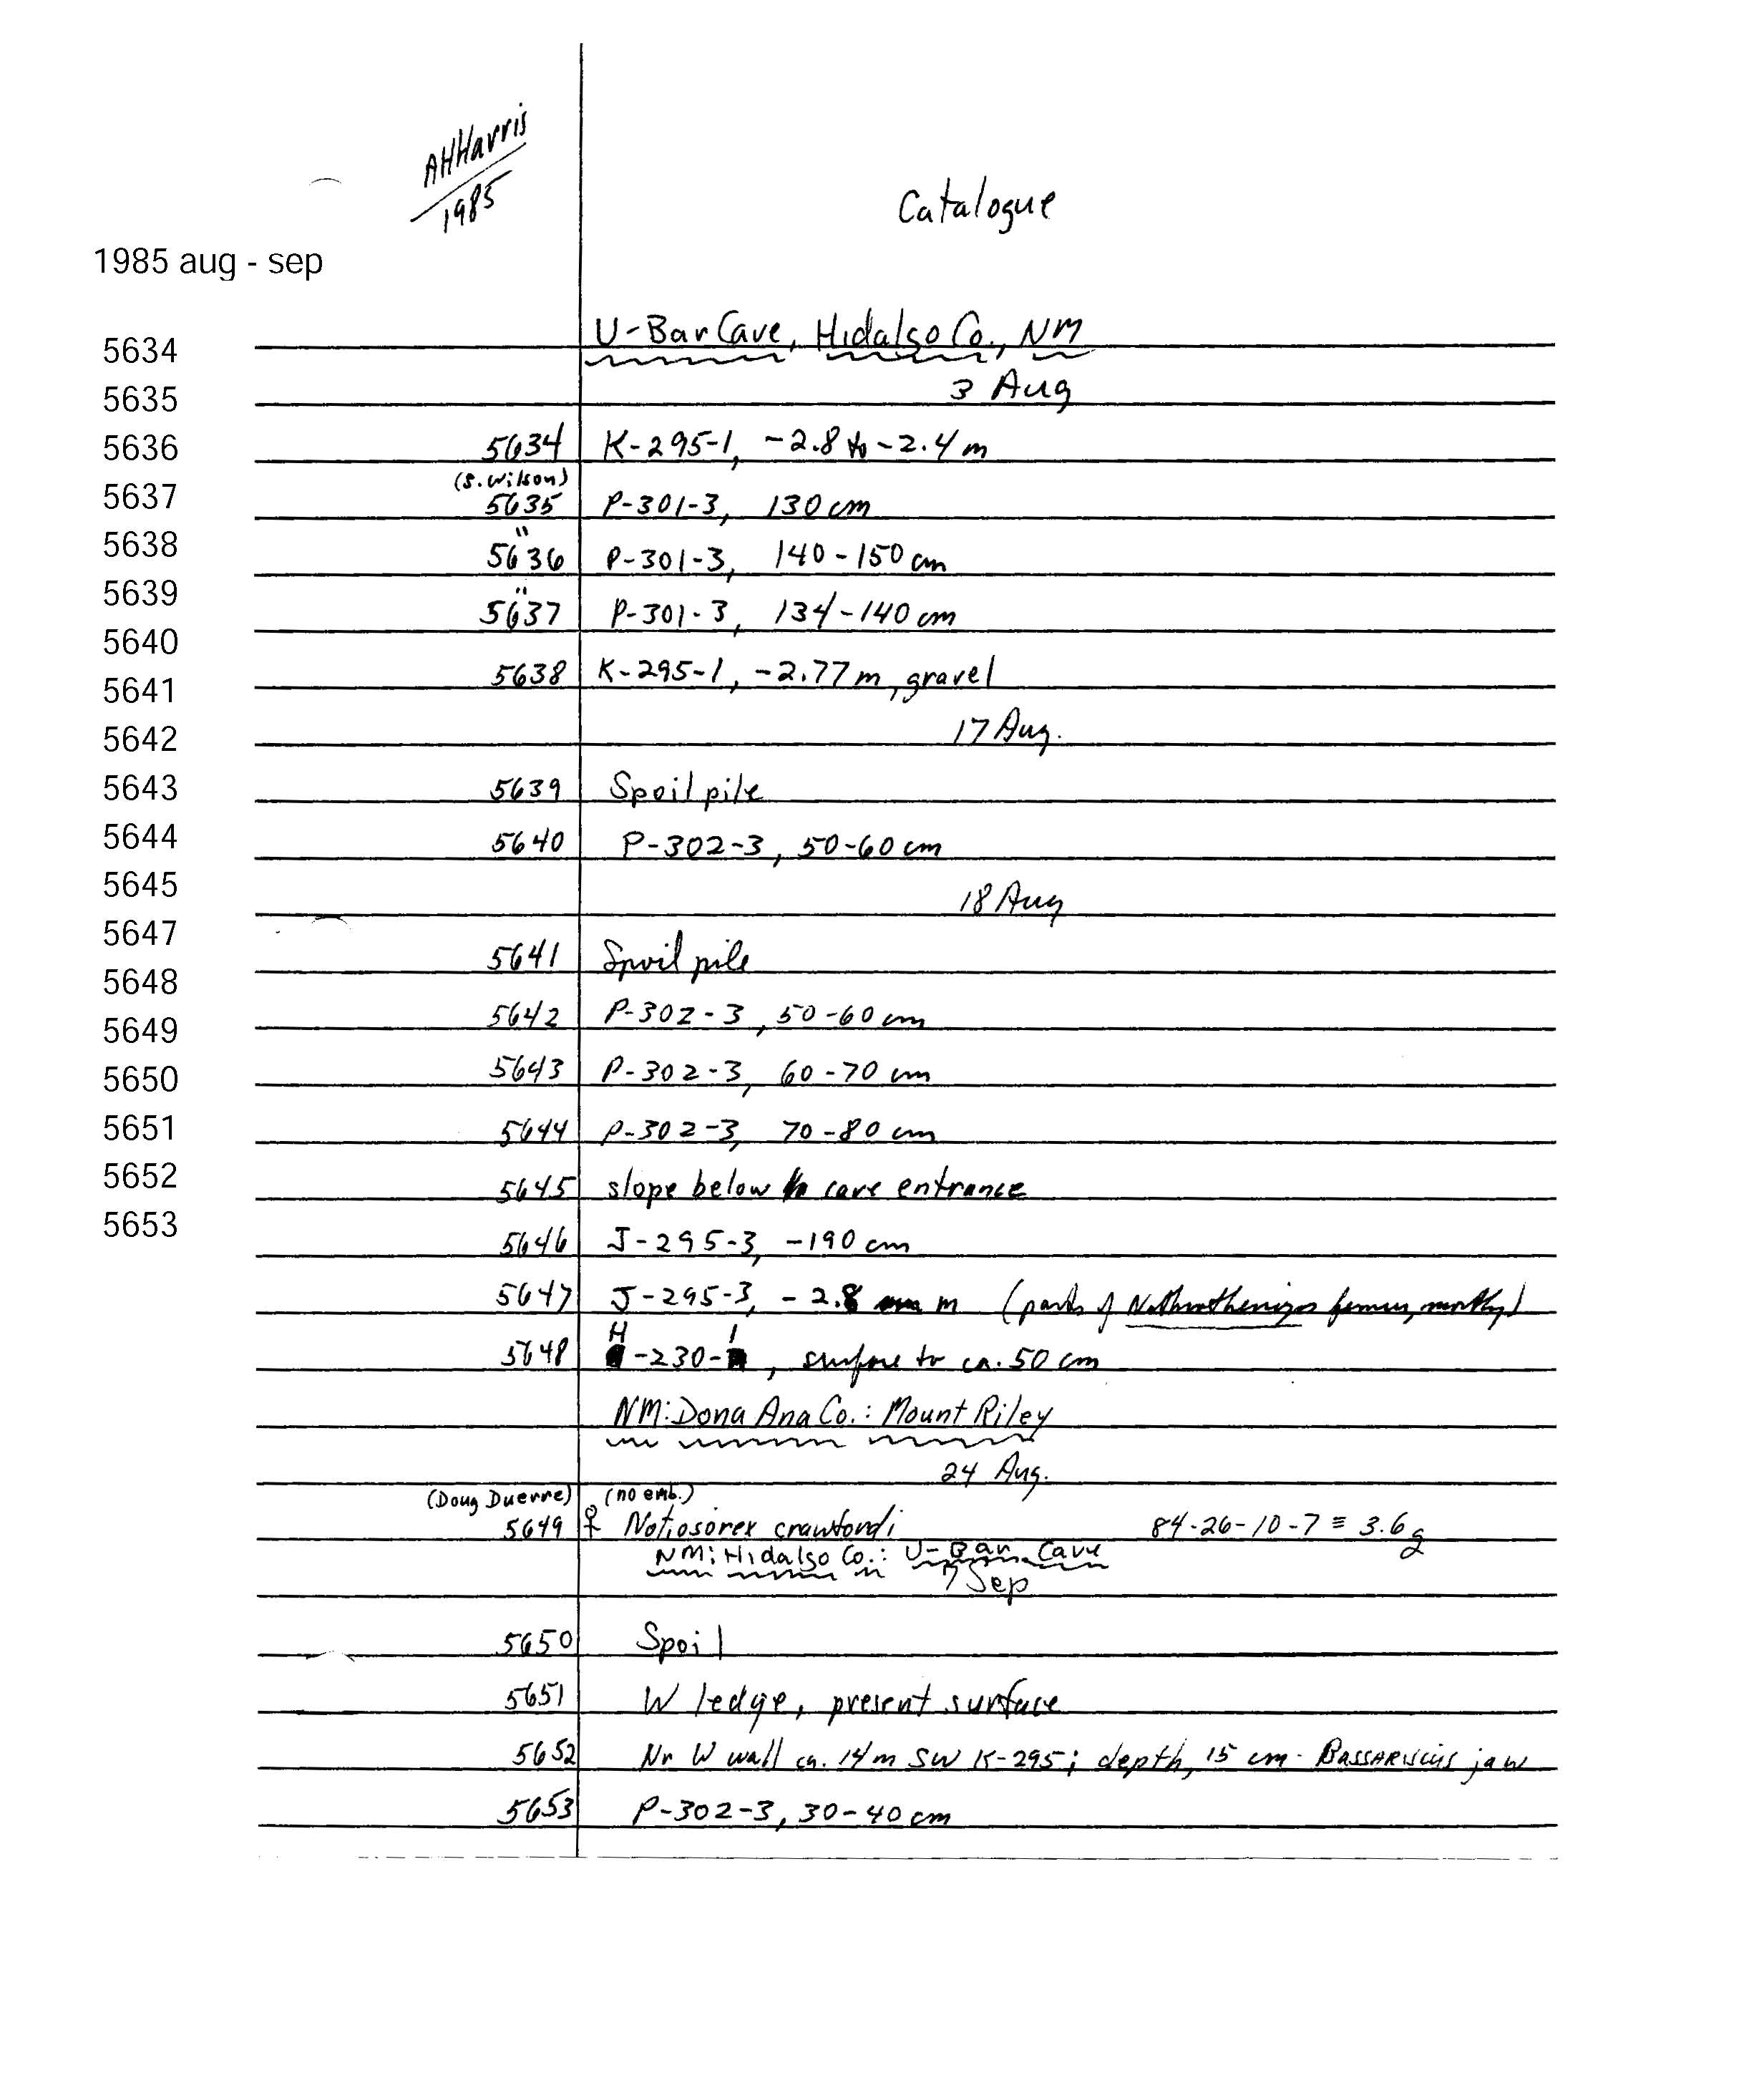 AHHarris
1985
Catalogue
1985 aug - sep
5634
5635
5636
5637
5638
5639
5640
5641
5642
5643
5644
5645
5647
5648
5649
5650
5651
5652
5653
U-Bar Cave, Hidalgo Co., NM
3 Aug
5634 K-295-1, -2.8 to -2.4 m
(S. Wilson)
5635 P-301-3, 130 cm
"
5636 P-301-3, 140-150 cm
"
5637 P-301-3, 134-140 cm
5638 K-295-1, -2.77 m, gravel
17 Aug.
5639 Spoil pile
5640 P-302-3, 50-60 cm
18 Aug
5641 Spoil pile
5642 P-302-3, 50-60 cm
5643 P-302-3, 60-70 cm
5644 P-302-3, 70-80 cm
5645 slope below cave entrance
5646 J-295-3, -190 cm
5647 J-295-3, -2.8 m (parts of Nothrotheriops femur, mostly)
5648 H-230-1, surface to ca. 50 cm
NM: Dona Ana Co.: Mount Riley
24 Aug.
(Doug Duerre) (no emb.)
5649 ♀ Notiosorex crawfordi 84-26-10-7 ≡ 3.6 g
NM: Hidalgo Co.: U-Bar Cave
7 Sep
5650 Spoil
5651 W ledge, present surface
5652 Nr W wall ca. 14 m SW K-295; depth, 15 cm - Bassariscus jaw
5653 P-302-3, 30-40 cm